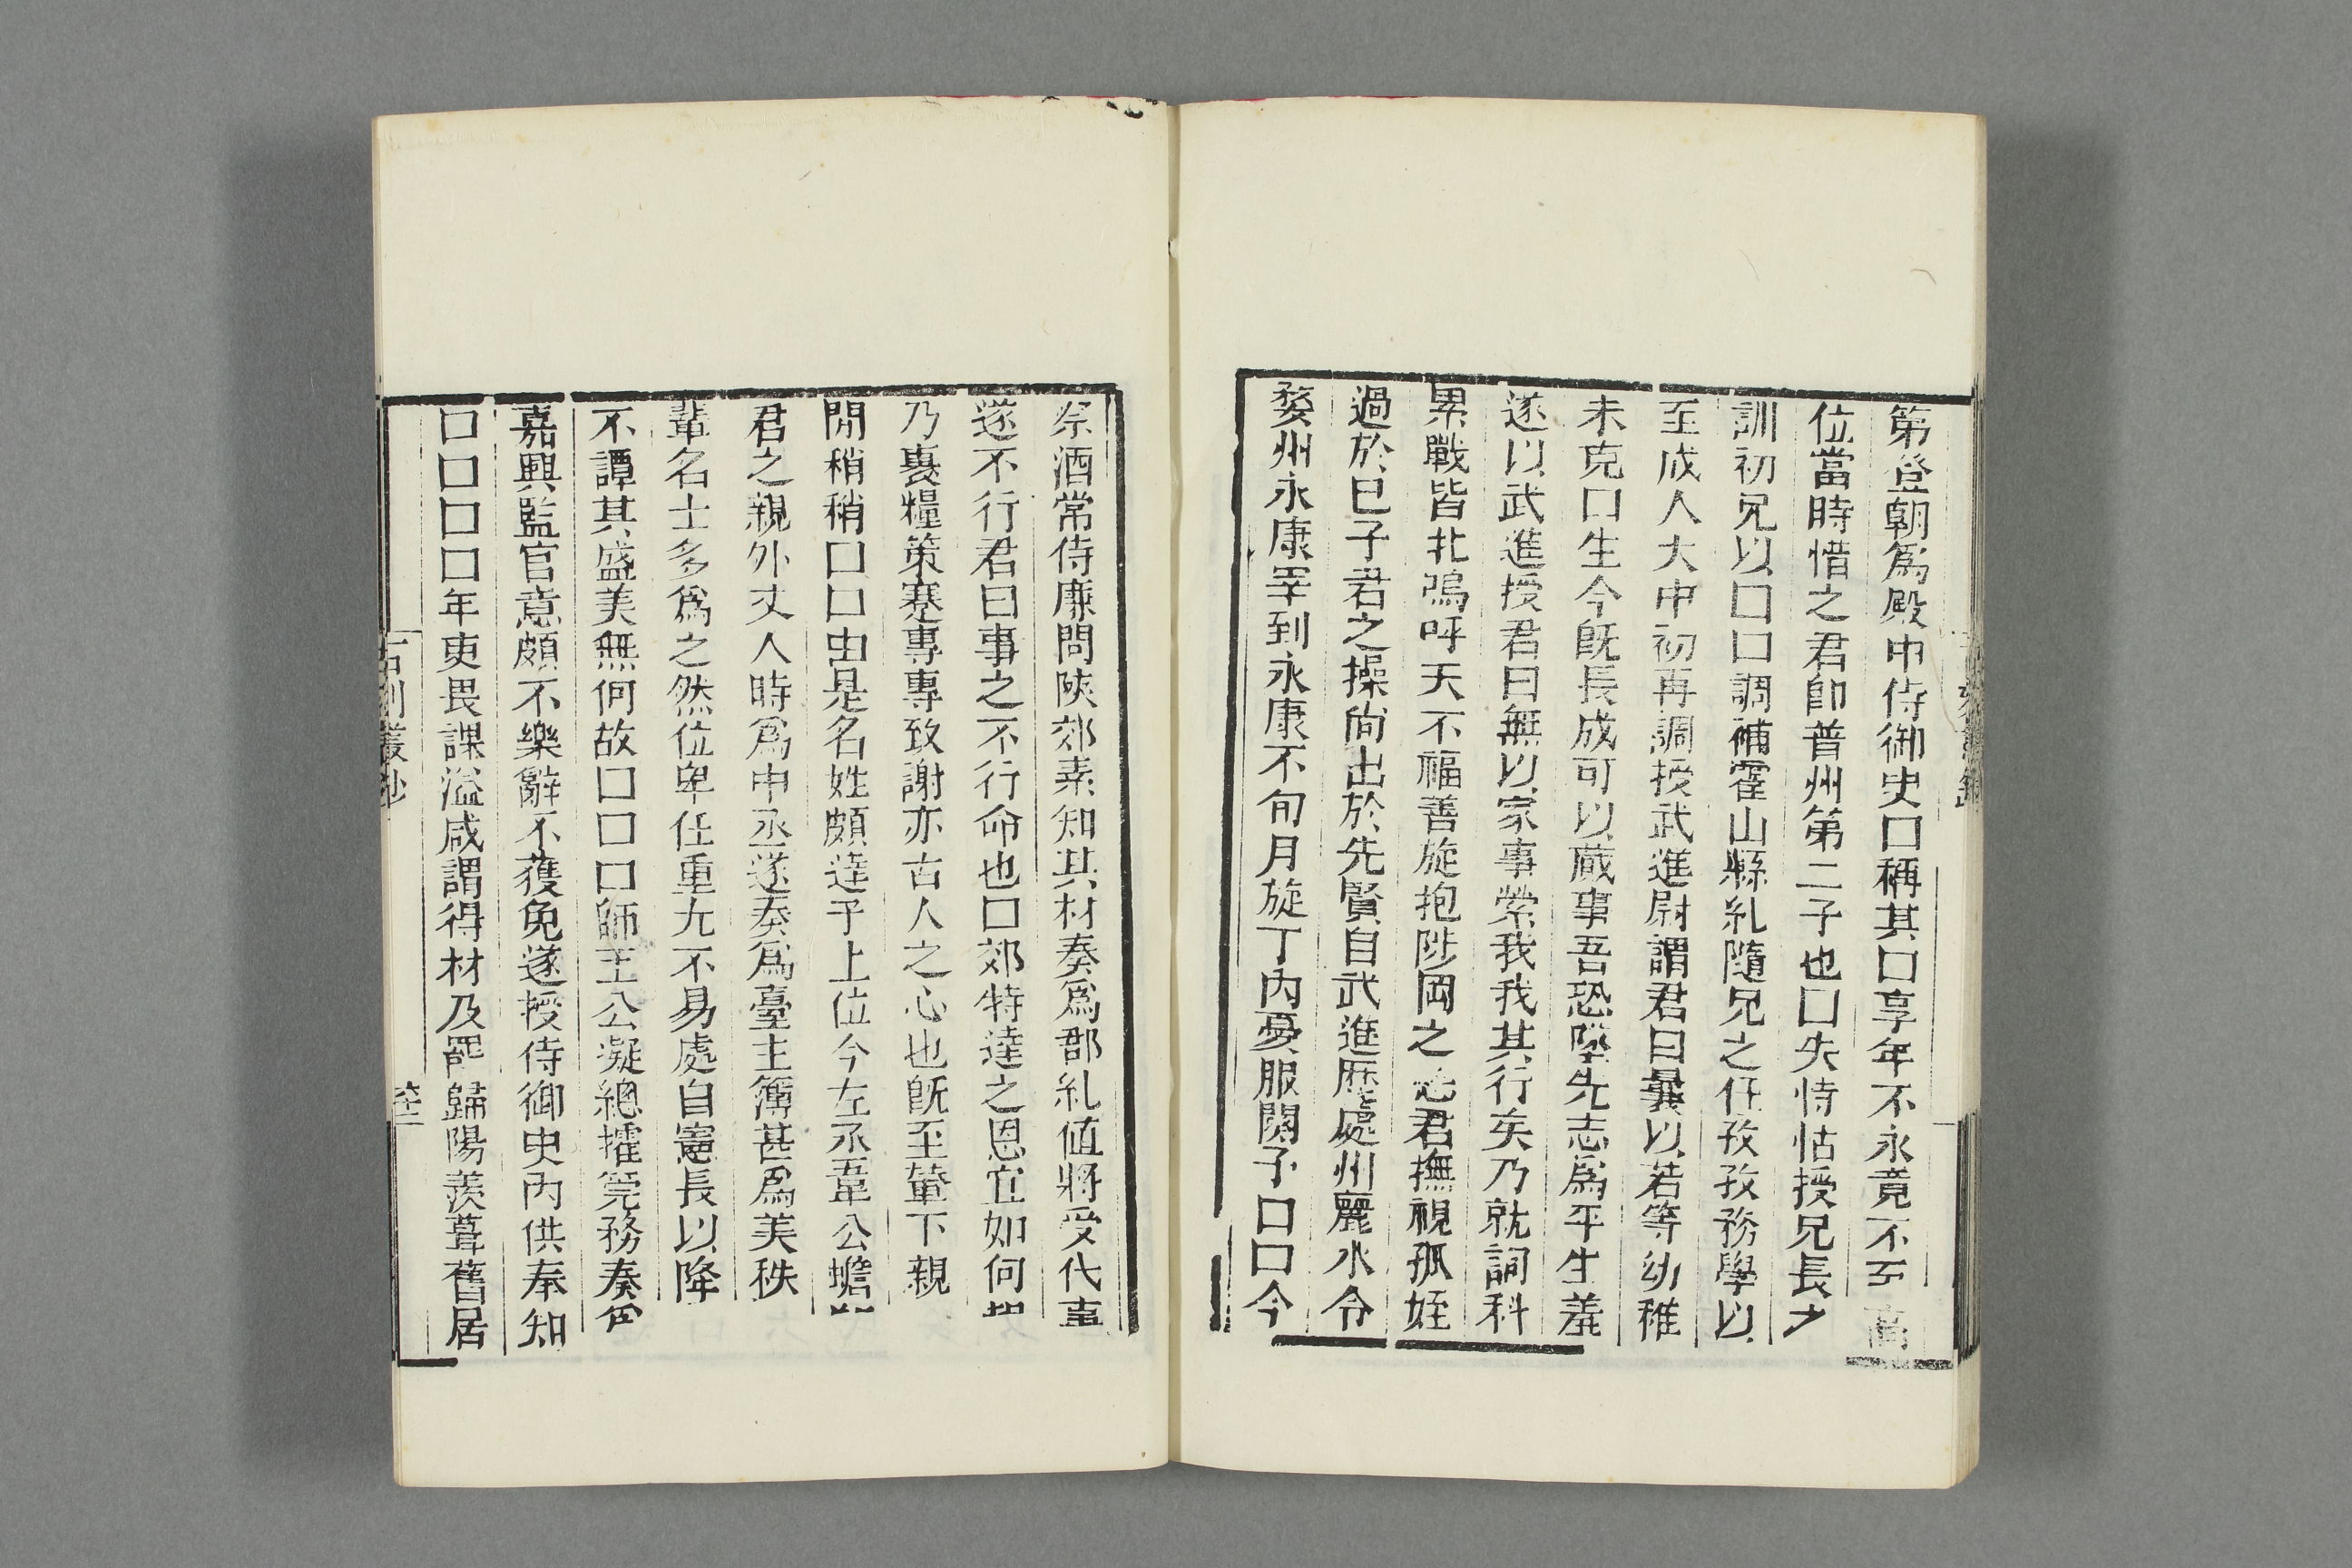 第登朝爲殿中侍御史口稱其口享年不永竟不至高
位當時惜之君即普州第二子也口失恃怙授兄長之
訓初兄以口口調補霍山縣糺隨兄之任孜孜務學以
至成人大中初再調授武進尉謂君曰曩以若等幼稚
未克口生今旣長成可以蕆事吾恐墜先志爲平生羞
遂以武進授君曰無以家事縈我我其行矣乃就詞科
累戰皆北嗚呼天不福善旋抱陟岡之 君撫視孤姪
過於已子君之操尙出於先賢自武進歷處州麗水令
婺州永康宰到永康不旬月旋丁內憂服闋予口口今
祭酒常侍廉問陝郊素知其材奏爲郡糺值將受代事
遂不行君曰事之不行命也口郊特達之恩宜如何報
乃裹糧策蹇專專致謝亦古人之心也旣至輦下親
閒稍稍口口由是名姓頗達于上位今左丞韋公蟾
君之親外丈人時爲中丞遂奏爲臺主簿甚爲美秩
輩名士多爲之然位卑任重尢不易處自憲長以降
不譚其盛美無何故口口口師王公凝總搉筦務奏爲
嘉興監官意頗不樂辭不獲免遂授侍御史內供奉知
口口口口年吏畏課溢咸謂得材及罷歸陽羨葺舊居
石刻叢鈔